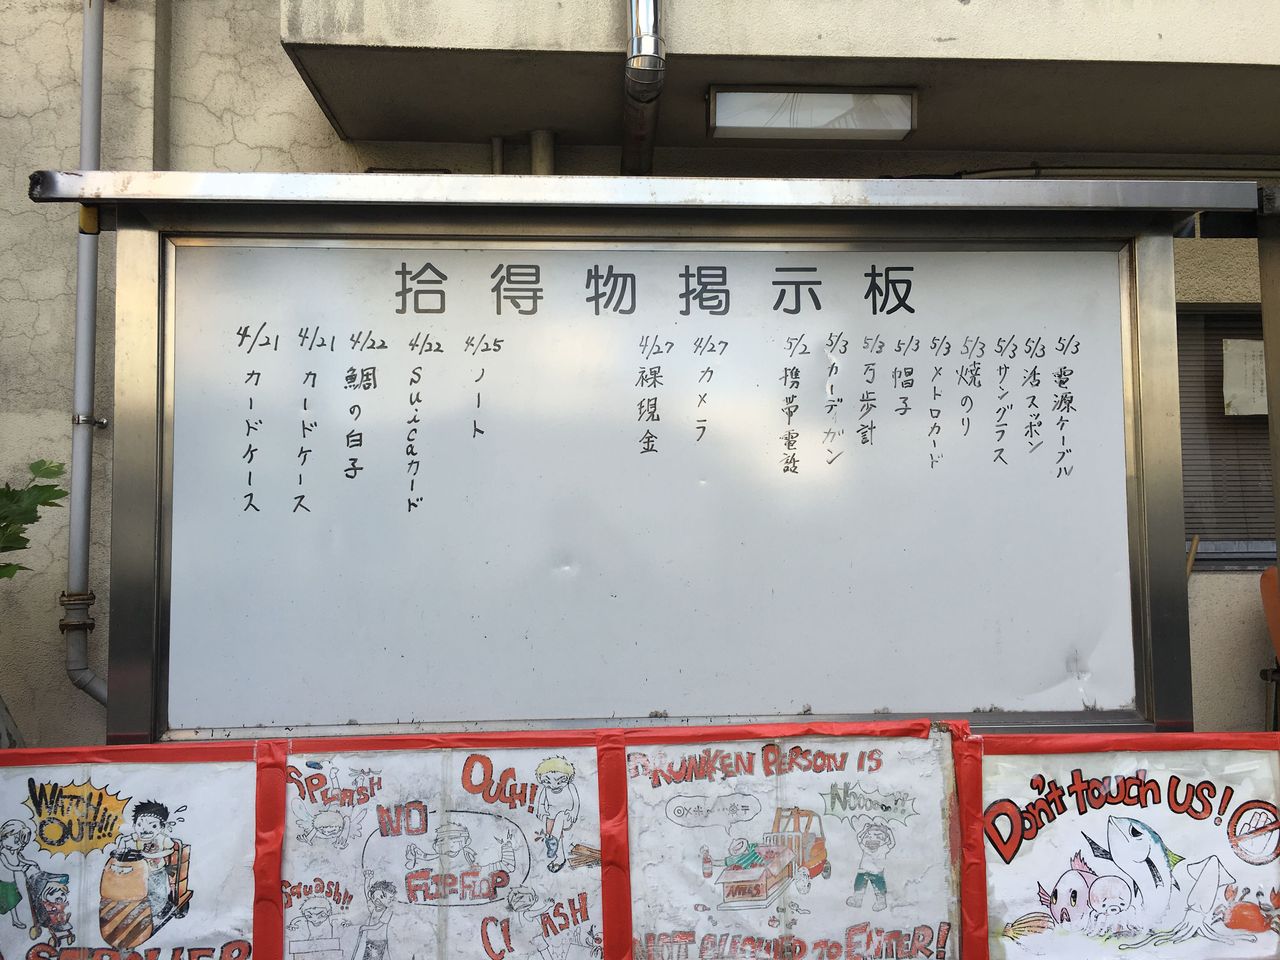 拾得物掲示板
5/3 電源ケーブル
5/3 活スッポン
5/3 サングラス
5/3 焼のり
5/3 メトロカード
5/3 帽子
5/3 万歩計
5/3 カーデガン
5/2 携帯電話
4/27 カメラ
4/27 裸現金
4/25 ノート
4/22 Suicaカード
4/22 鯛の白子
4/21 カードケース
4/21 カードケース
WATCH OUT!!!
STROLLER
SPLASH
OUCH!
NO
FLIP FLOP
Squash!!
CRASH
DRUNKEN PERSON IS
Noooooo!!
NOT ALLOWED TO ENTER!
Don't touch US!